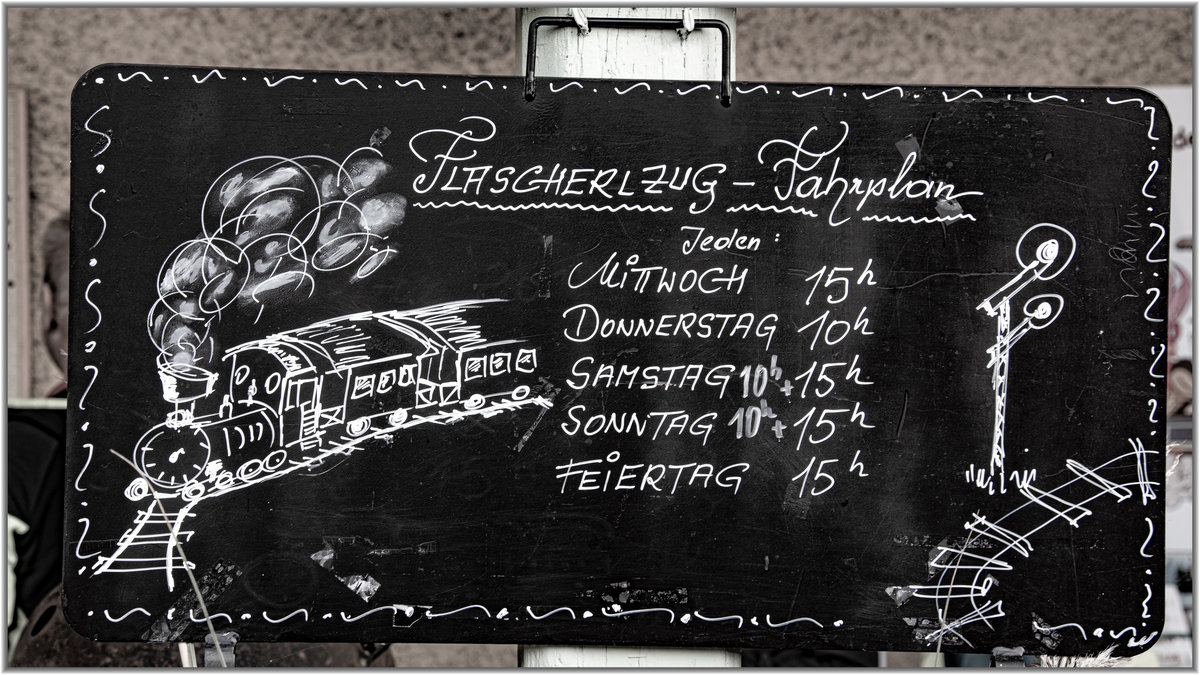 FLASCHERLZUG - Fahrplan
Jeden:
MITTWOCH 15h
DONNERSTAG 10h
SAMSTAG 10h + 15h
SONNTAG 10h + 15h
FEIERTAG 15h